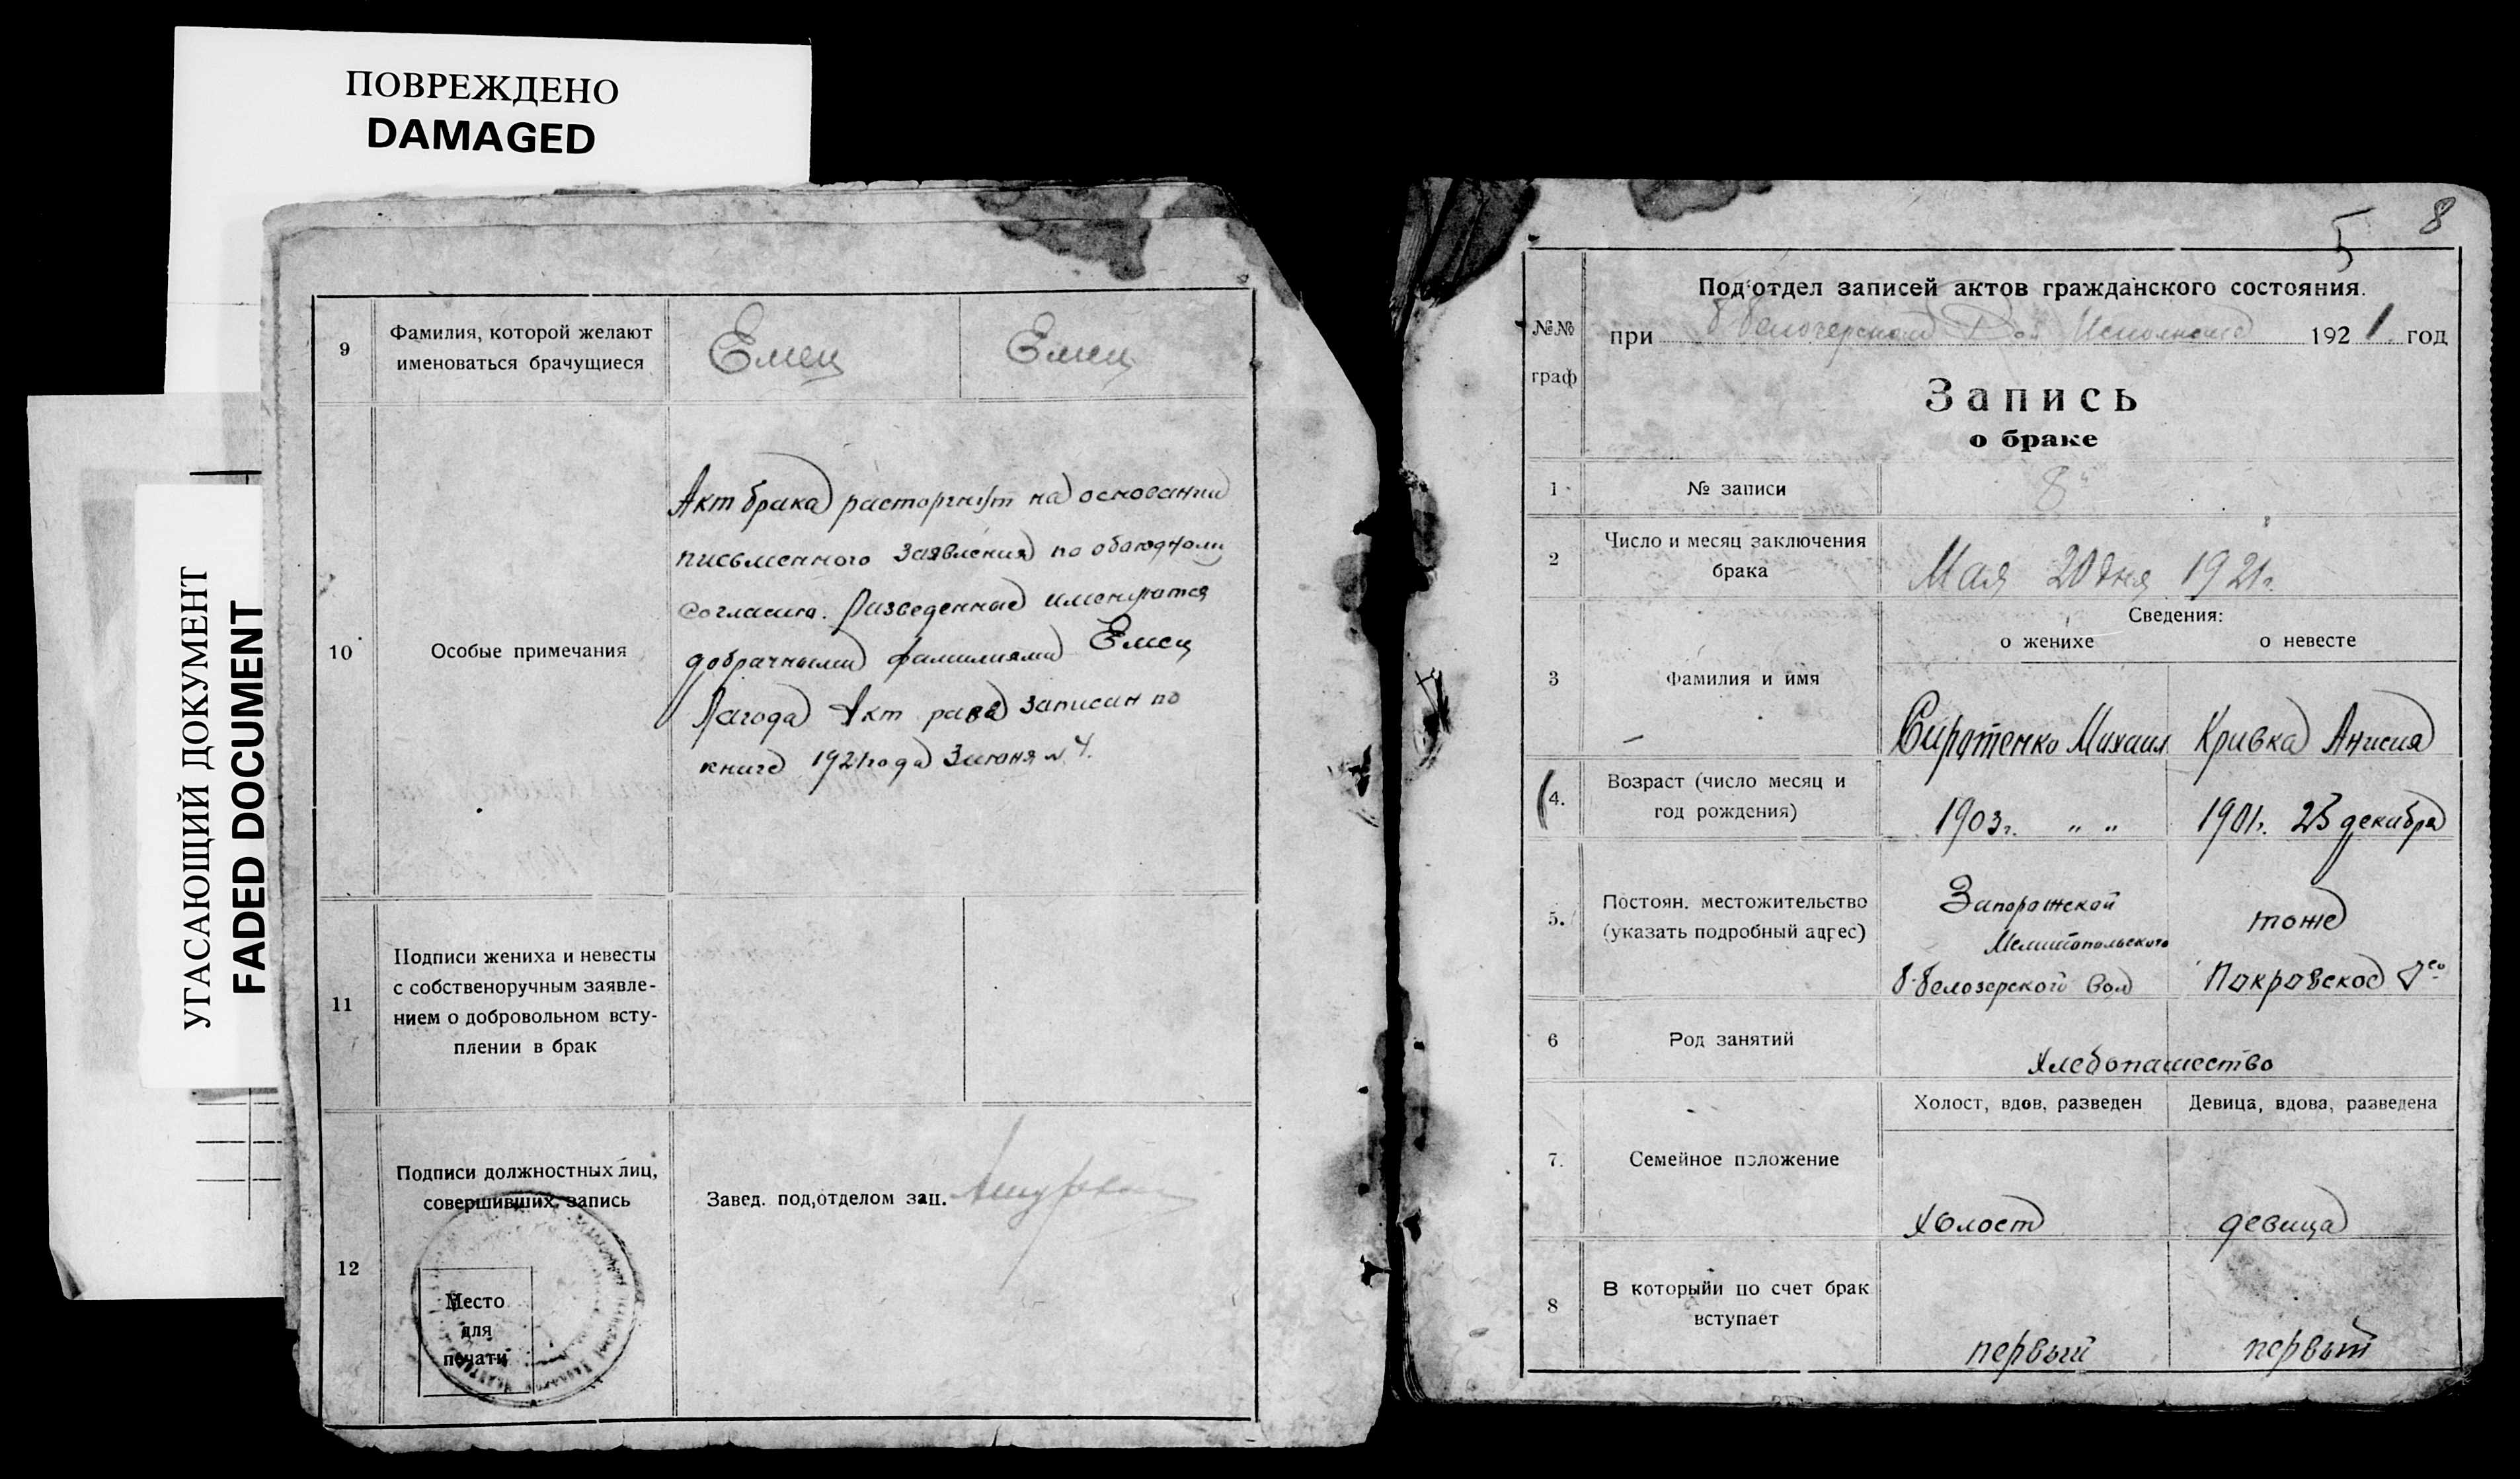 ПОВРЕЖДЕНО
DAMAGED
УГАСАЮЩИЙ ДОКУМЕНТ
FADED DOCUMENT
9
Фамилия, которой желают
именоваться брачущиеся
Емец
Емец
10
Особые примечания
Акт брака расторгнут на основании
письменного заявления по обоюдному
согласию. Разведенные именуются
добрачными фамилиями Емец
Лагода Акт записан по
книге 1921 года 3 июня № 4.
11
Подписи жениха и невесты
с собственоручным заявле-
нием о добровольном всту-
плении в брак
12
Подписи должностных лиц,
совершивших запись
Место
для
печати
Завед. под,отделом зап.
5 8
№№
граф
Под'отдел записей актов гражданского состояния.
при Б Белозерском Вол Исполкоме 1921 год
Запись
о браке
1
№ записи
8
2
Число и месяц заключения
брака
Мая 20 дня 1921г.
Сведения:
о женихе
о невесте
3
Фамилия и имя
Сиротенко Михаил
Кривка Анисия
4.
Возраст (число месяц и
год рождения)
1903г. " "
1901г. 23 декабря
5.
Постоян. местожительство
(указать подробный адрес)
Запорожской
Мелитопольского
Б-Белозерского Вол
тоже
Покровское
6
Род занятий
Хлебопашество
7.
Семейное положение
Холост, вдов, разведен
Девица, вдова, разведена
холост
девица
8
В которыйи по счет брак
вступает
первый
первый